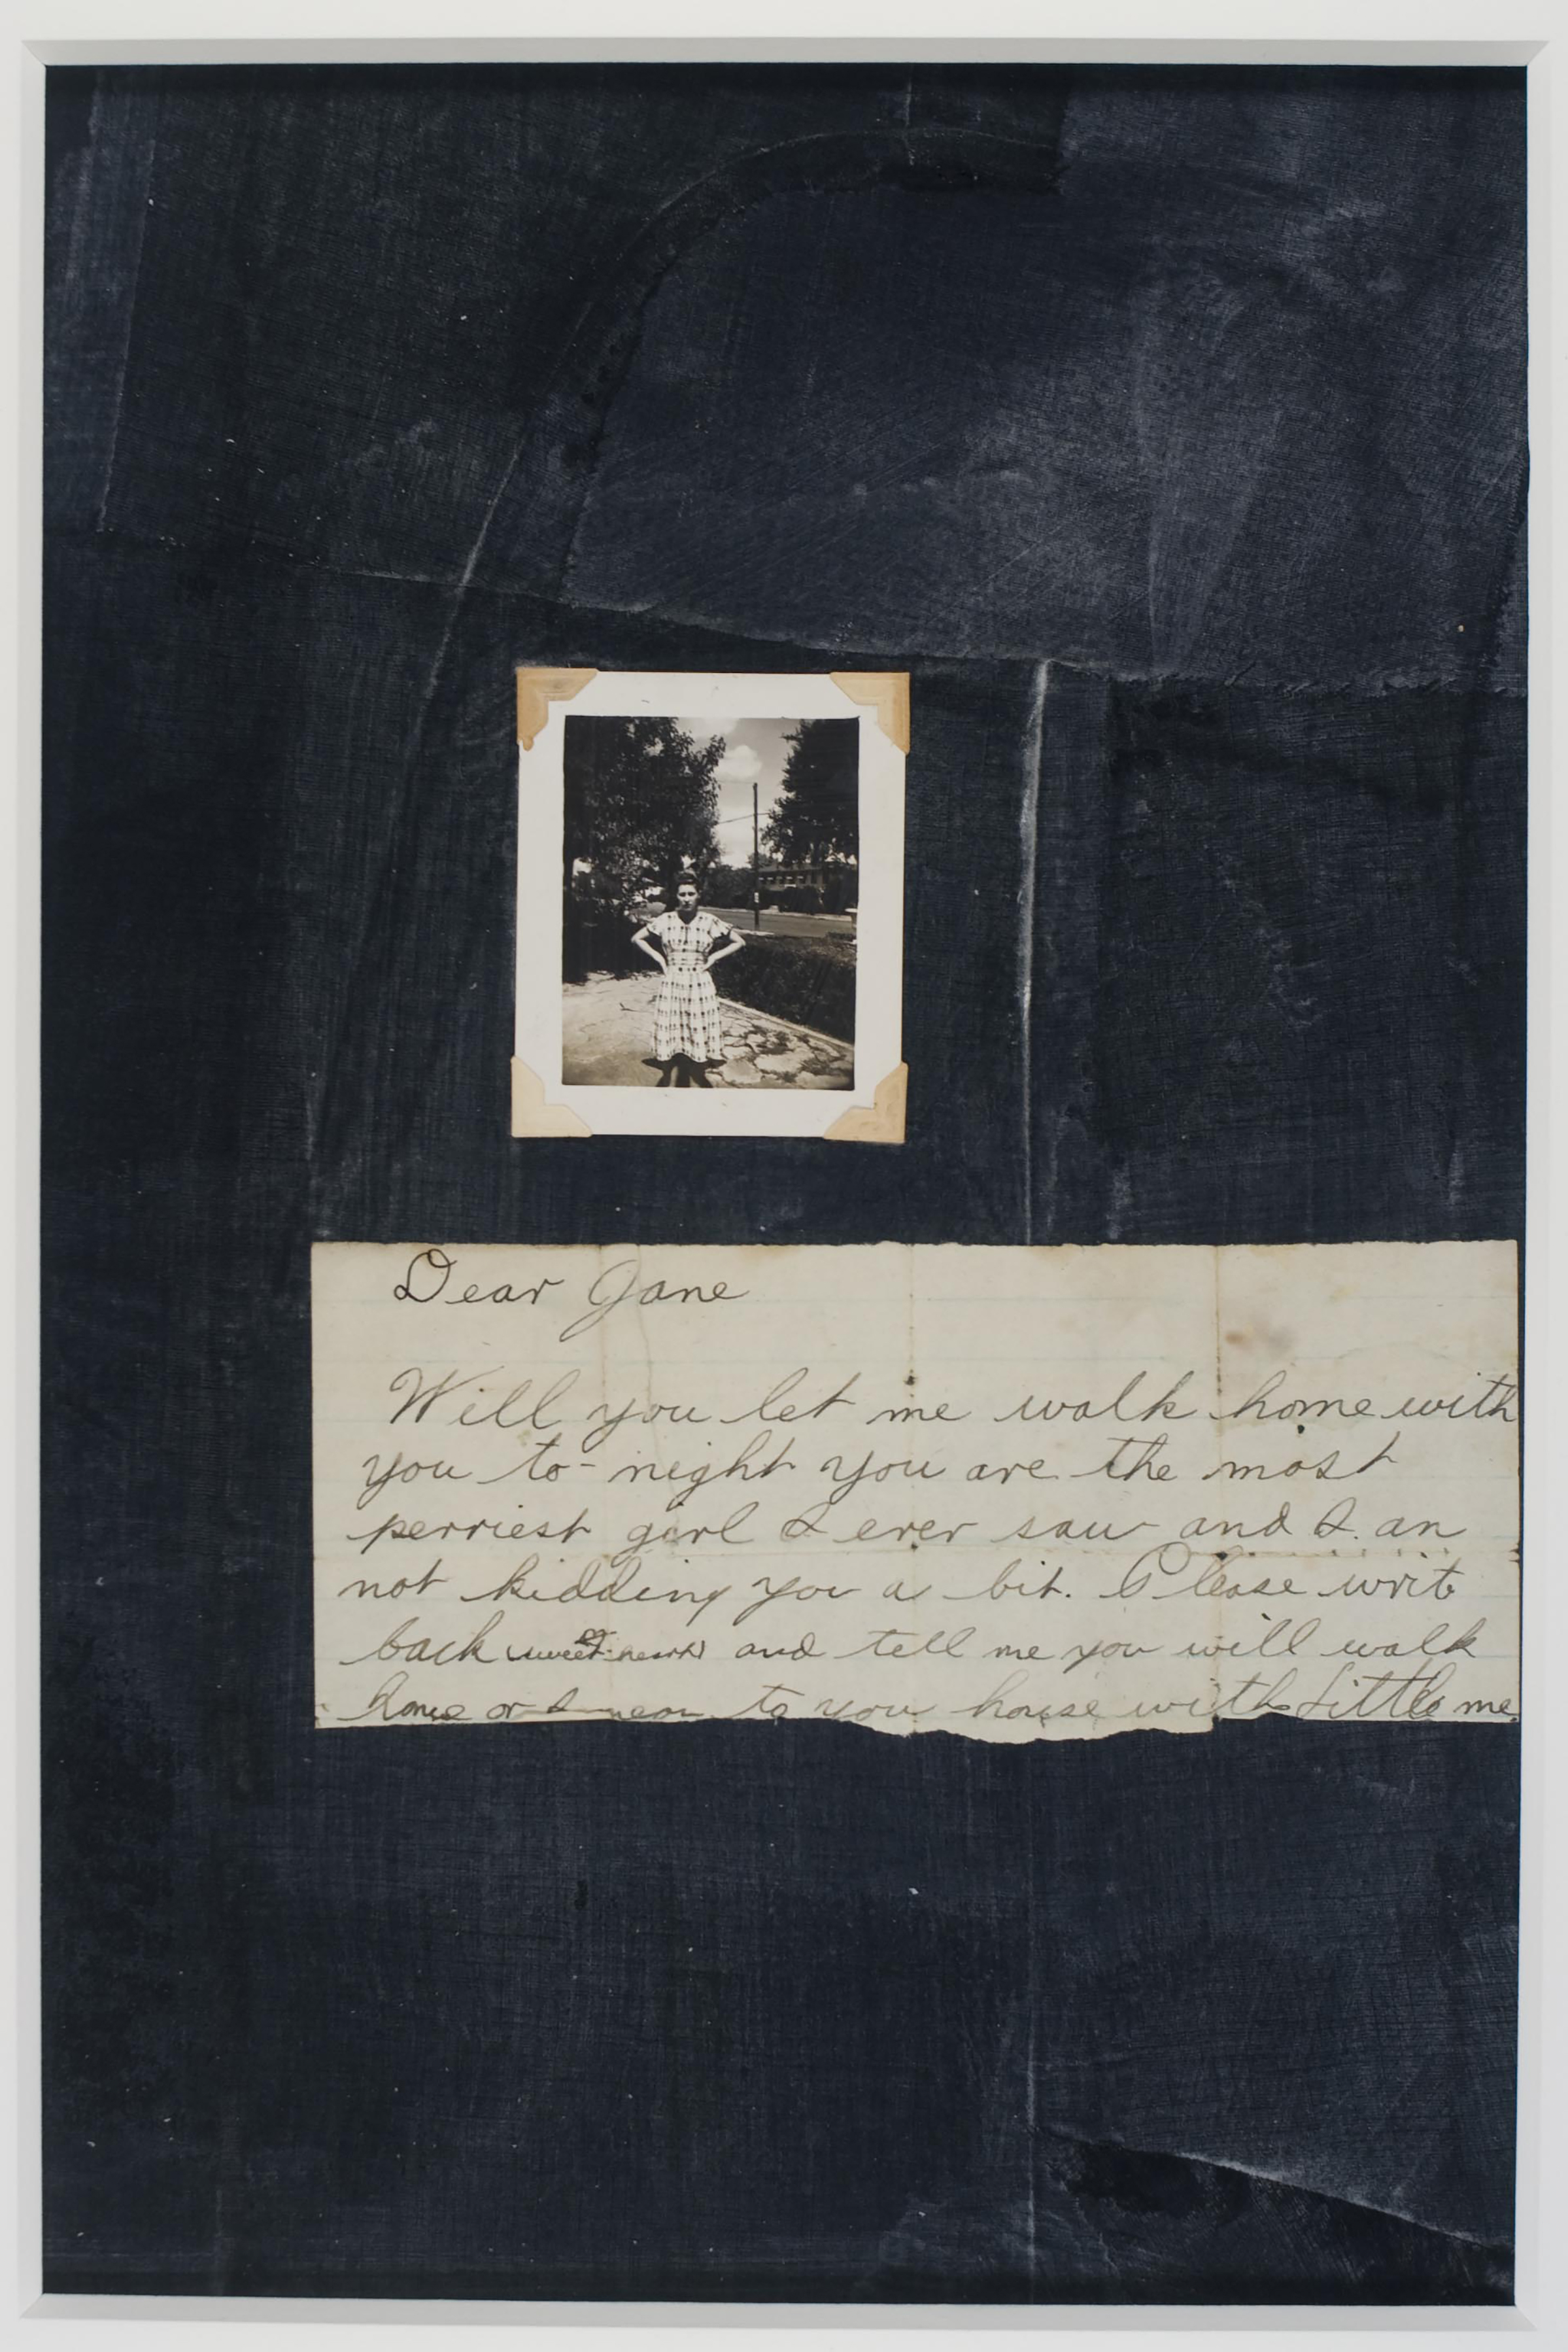 Dear Jane
Will you let me walk home with
you to-night you are the most
perriest girl I ever saw and I. an
not kidding you a bit. Please write
back sweet heart and tell me you will walk
home or I mean to you house with little me.